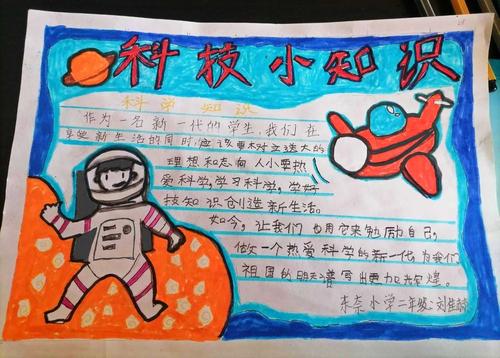 科技小知识
科学知识
作为一名新一代的学生,我们在
享受新生活的同时,应该更树立远大的
理想和志向 人小要热
爱科学,学习科学,学好
技知识创造新生活。
如今,让我们也用它来勉励自己,
做一个热爱科学的新一代,为我们
祖国的明天谱写出更加光煌。
小学二年级 刘佳